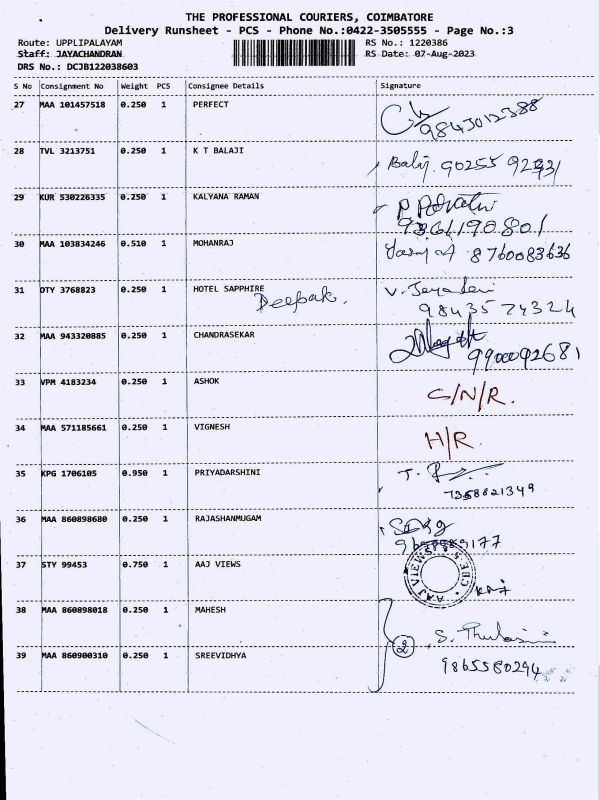 THE PROFESSIONAL COURIERS, COIMBATORE
Delivery Runsheet - PCS - Phone No.:0422-3505555 - Page No.:3
Route: UPPLIPALAYAM RS No.: 1220386
Staff: JAYACHANDRAN RS Date: 07-Aug-2023
DRS No.: DCJB122038603
S No Consignment No Weight PCS Consignee Details Signature
27 MAA 101457518 0.250 1 PERFECT
9843012388
28 TVL 3213751 0.250 1 K T BALAJI
Balaji 90255
29 KUR 530226335 0.250 1 KALYANA RAMAN
9361190801
30 MAA 103834246 0.510 1 MOHANRAJ 8760083636
31 DTY 3768823 0.250 1 HOTEL SAPPHIRE V. Jeyadevi
Deepak. 98435 74324
32 MAA 943320885 0.250 1 CHANDRASEKAR
9900092681
33 VPM 4183234 0.250 1 ASHOK C/N/R.
34 MAA 571185661 0.250 1 VIGNESH H/R.
35 KPG 1706105 0.950 1 PRIYADARSHINI
7358821349
36 MAA 860898680 0.250 1 RAJASHANMUGAM
37 STY 99453 0.750 1 AAJ VIEWS
AAJ VIEWS CBE
38 MAA 860898018 0.250 1 MAHESH
2 S. Thulasi
39 MAA 860900310 0.250 1 SREEVIDHYA 9865580294